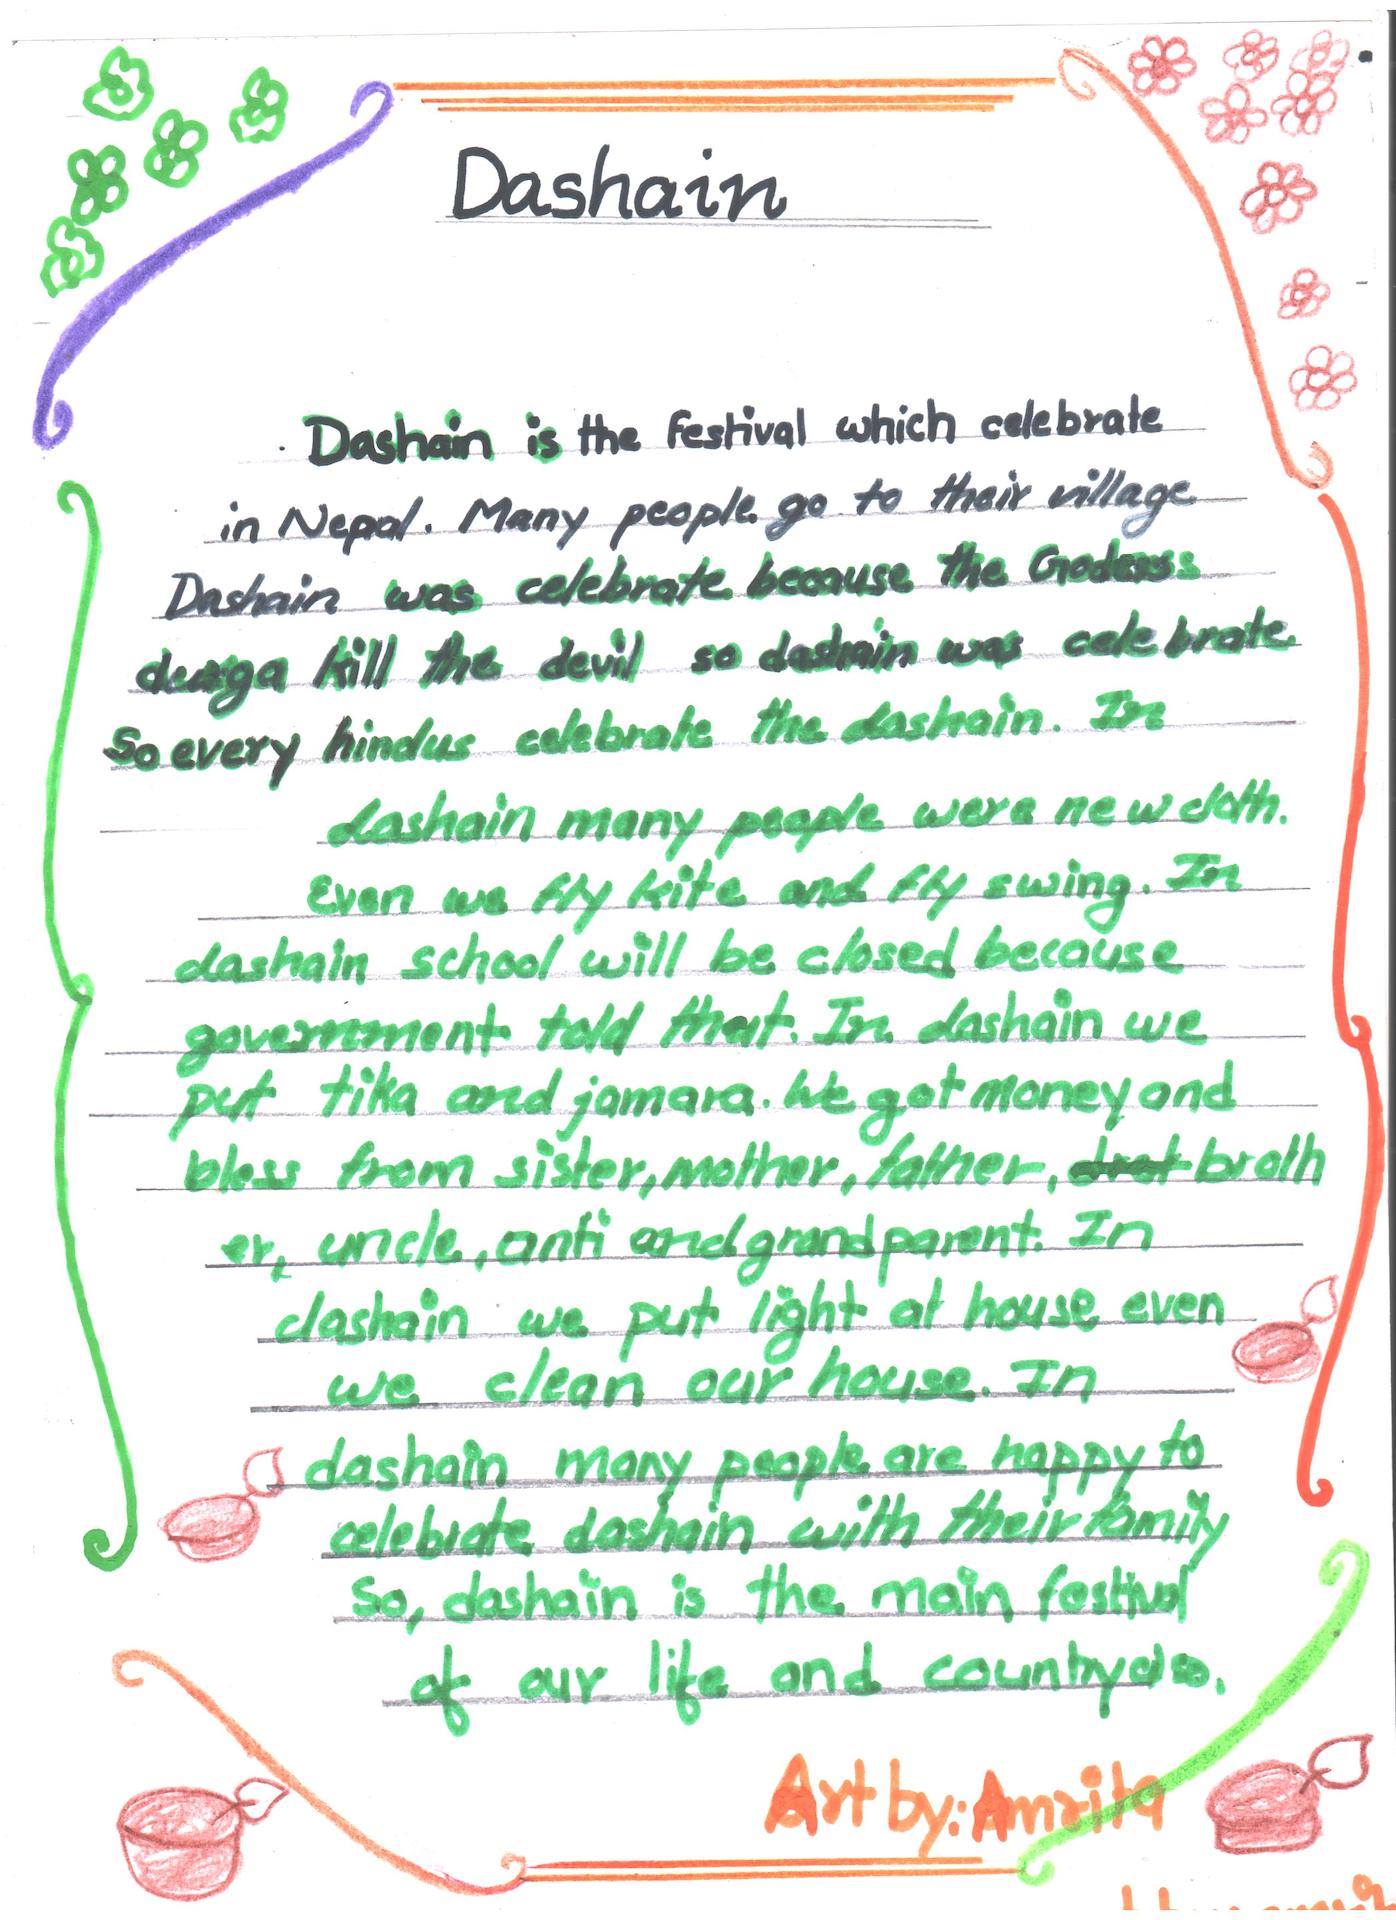 Dashain
Dashain is the festival which celebrate
in Nepal. Many people go to their village
Dashain was celebrate because the Godess
durga kill the devil so dashain was celebrate
So every hindus celebrate the dashain. In
dashain many people were new cloth.
Even we fly kite and fly swing. In
dashain school will be closed because
government told that. In dashain we
put tika and jamara. We got money and
bless from sister, mother, father, broth
er, uncle, anti and grandparent. In
dashain we put light at house even
we clean our house. In
dashain many people are happy to
celebrate dashain with their family
So, dashain is the main festival
of our life and country also.
Art by: Amrita